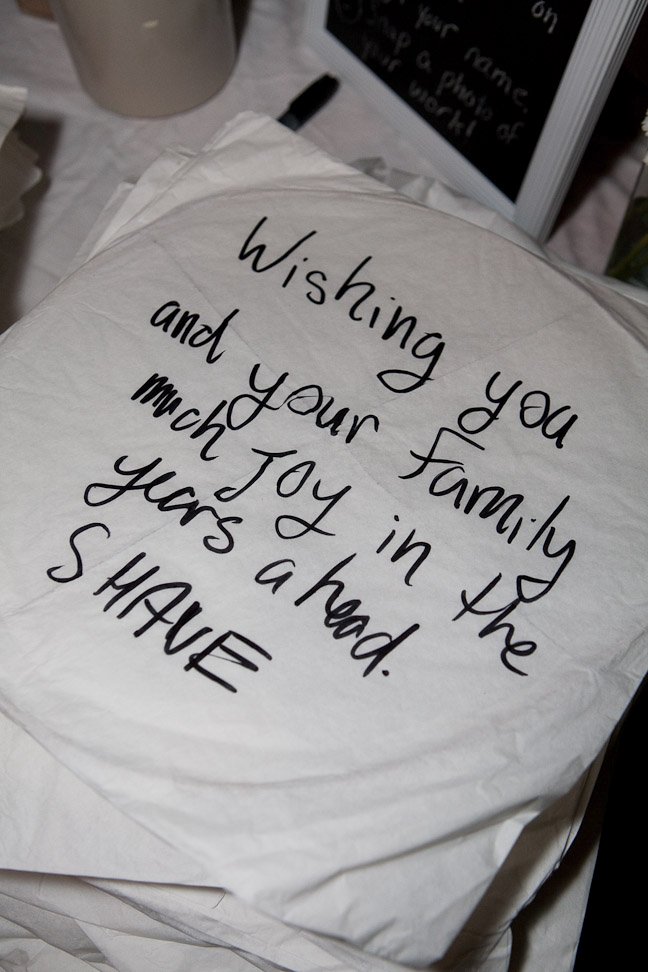 on
your name.
Snap a photo of
your work!
Wishing you
and your Family
much JOY in the
years ahead.
SHAVE